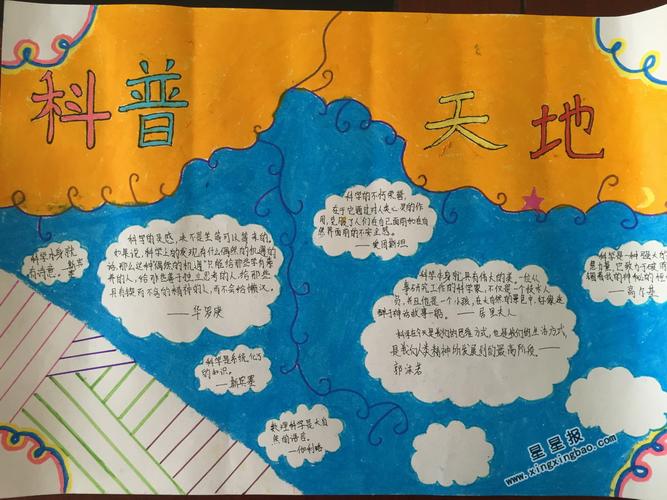 科普 天地
科学本身就
有诗意。—斯宾塞
科学的灵感,决不是坐等可以等来的。
如果说,科学上的发现有什么偶然的机遇的
话,那么这种偶然的机遇只能给那些学有素
养的人,给那些善于独立思考的人,给那些
具有锲而不舍的精神的人,而不会给懒汉。
——华罗庚
科学是系统化了
的知识。
——斯宾塞
数理科学是大自
然的语言。
——伽利略
科学的不朽荣誉,
在于它通过对人类心灵的作
用,克服了人们在自己面前和在自
然界面前的不安全感。
——爱因斯坦
科学本身就具有伟大的美。一位从
事研究工作的科学家,不仅是一个技术人
员,并且他是一个小孩,在大自然的景色中,好像迷
醉于神话故事一般。——居里夫人
科学在今天是我们的思维方式,也是我们的生活方式,
是我们人类精神所发展到的最高阶段。——
郭沫若
科学是一种强大的
思力量,它致力于破
——高尔基
星星报
www.xingxingbao.com